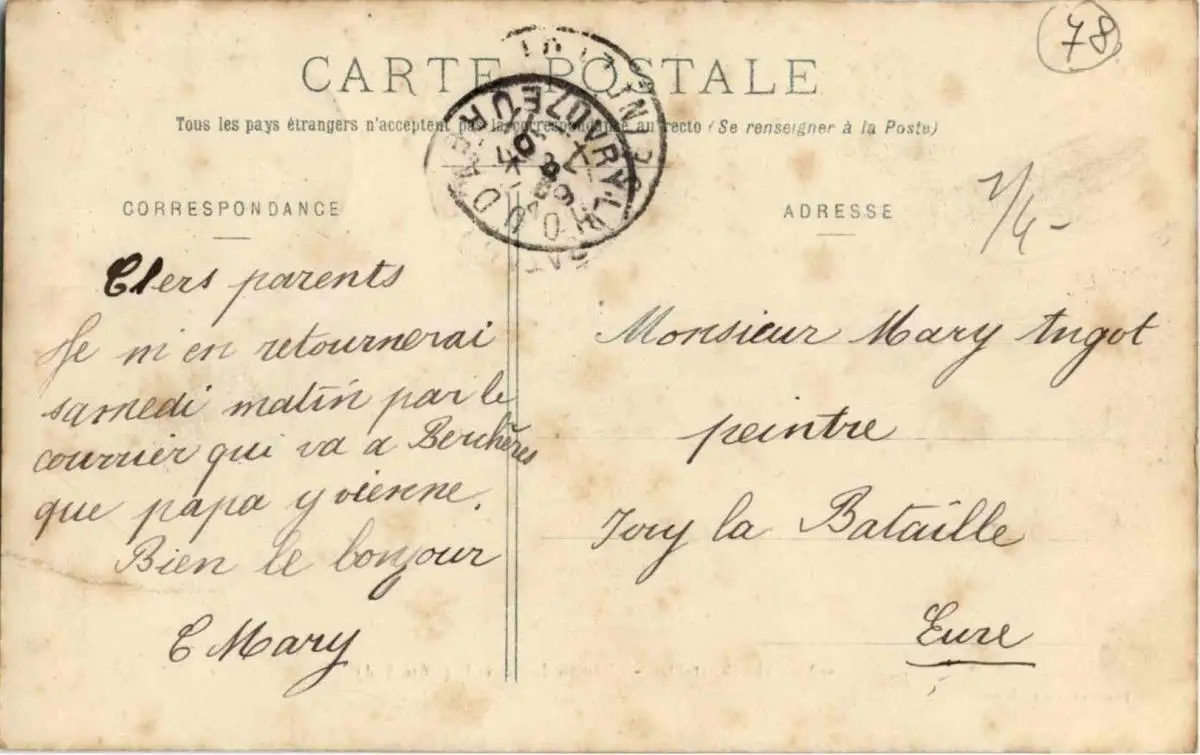 78
CARTE POSTALE
Tous les pays étrangers n'acceptent pas la correspondance au recto (Se renseigner à la Poste)
CORRESPONDANCE
Chers parents
Je m'en retournerai
samedi matin par le
courrier qui va a Berchères
que papa y vienne.
Bien le bonjour
C Mary
ADRESSE
1/4-
Monsieur Mary Angot
peintre
Ivry la Bataille
Eure
EURE